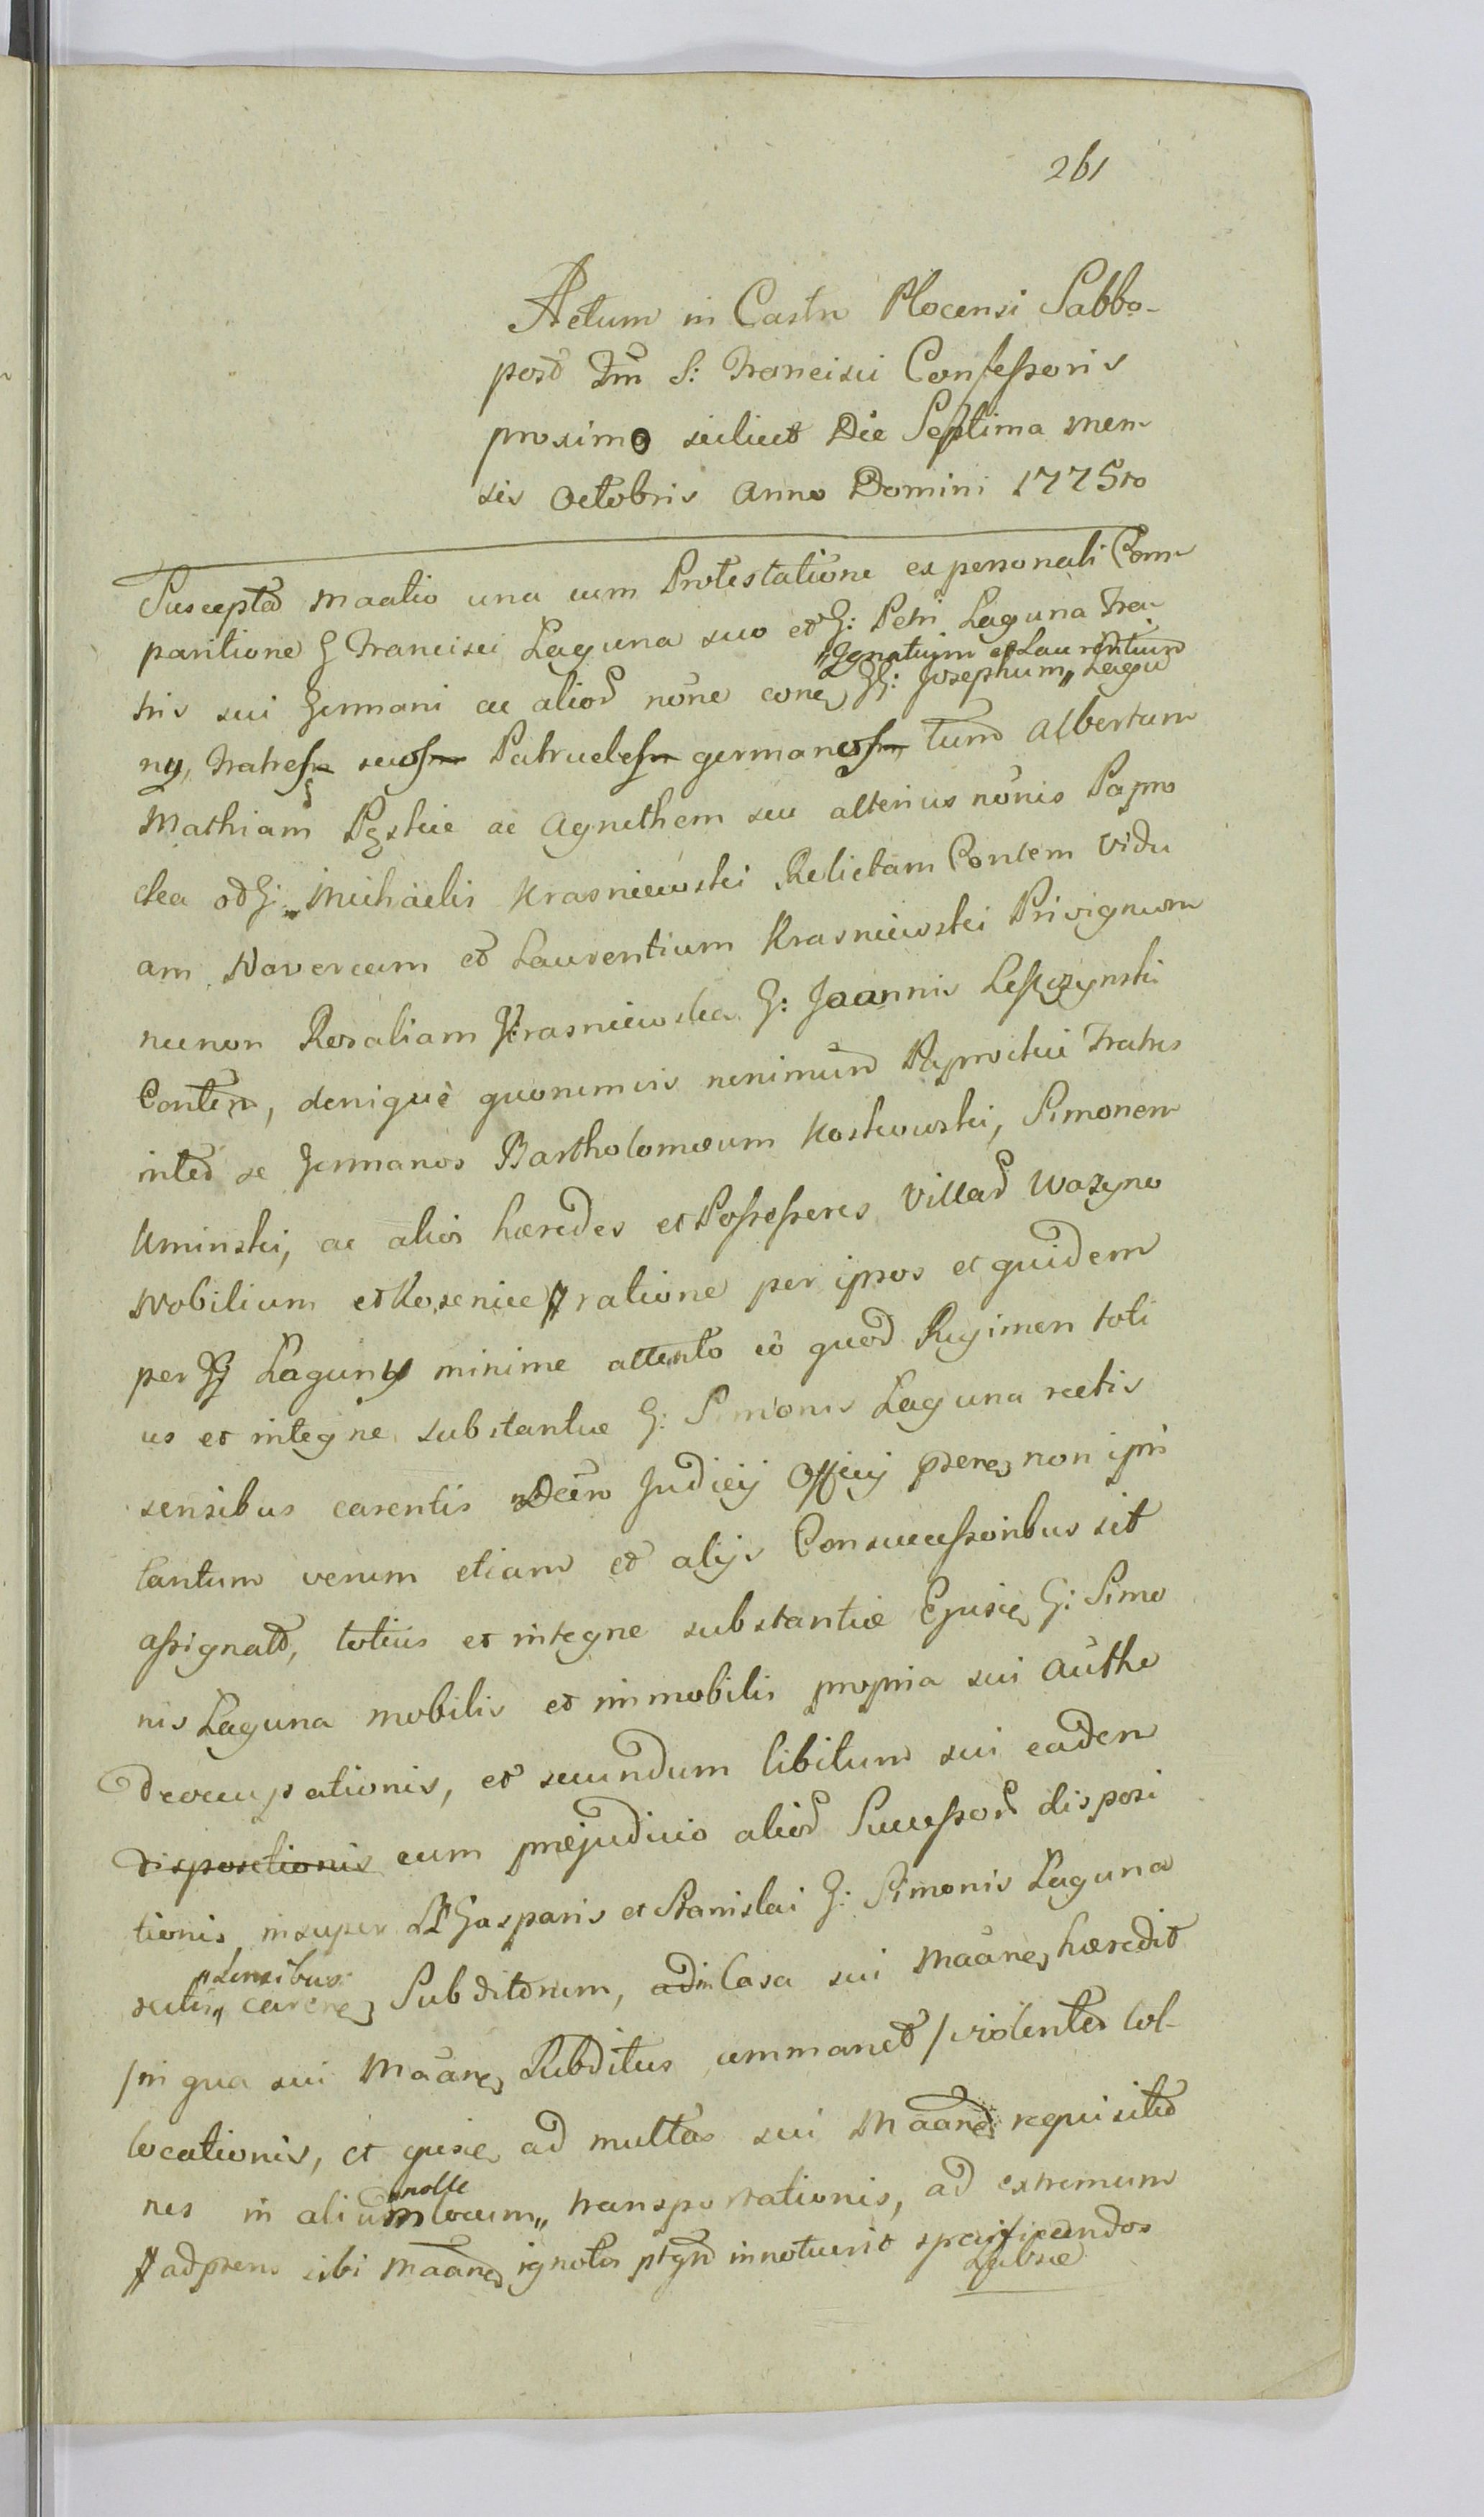 261
Actum in Castro Plocensi Sabbo-
post Fm S: Francisci Confessoris
proximo scilicet Die Septima men
sis Octobris Anno Domini 1775to
Suscepta Maatio una cum Protestatione ex personali Com
paritione G Francisci Laguna suo et G: Petri Laguna Fra-
tris sui Germani ac alior nõne cone GG: Josephum „ Lagu
„Ignatium et Laurentium
ny, Fratres suos Patrueles germanos tum Albertum
Mathiam Pęskie ac Agnethem seu alterius nõnis Papro
cka od G: Michaelis Krasniewski Relictam Contem Vidu
am Novercam et Laurentium Krasniewski Privignum
necnon Rosaliam Krasniewska G: Joannis Leszczynski
Contem, denique quonimvis nenimum Paprockie Fratres
inter se Germanos Bartholomæum Koskowski, Simonem
Uminski, ac alios hæredes et Possessores Villar Wozyno
Nobilium et Kosenice ratione per ipsos et quidem
per GG Laguny minime attento eo quod Regimen toti
us et integre substantiæ G: Simonis Laguna rectis
sensibus carentis Decro Judicij Officij psene non ipsi
tantum verum etiam et alijs Consuccessoribus sit
assignat, totius et integre substantiæ Ejusie G: Simo
nis Laguna mobilis et immobilis propria sui autho
deoccupationis, et secundum libitum sui eadem
dispositionis cum præjudicio alior Successor disposi
tionis, insuper LL Gasparis et Stanislai G: Simonis Laguna
rectis „ carene Subditorum, ad in Casa sui Maane hæredit
„sensibus
/in qua sui Maane Subditus commanet/ violenter Col-
locationis, et ejusie ad multas sui Maane requisitio
nes in alium locum „ transportationis, ad extremum
„nolle
ad psens sibi Maane ignotos ptqm innotuerit specificandos
Lubræ